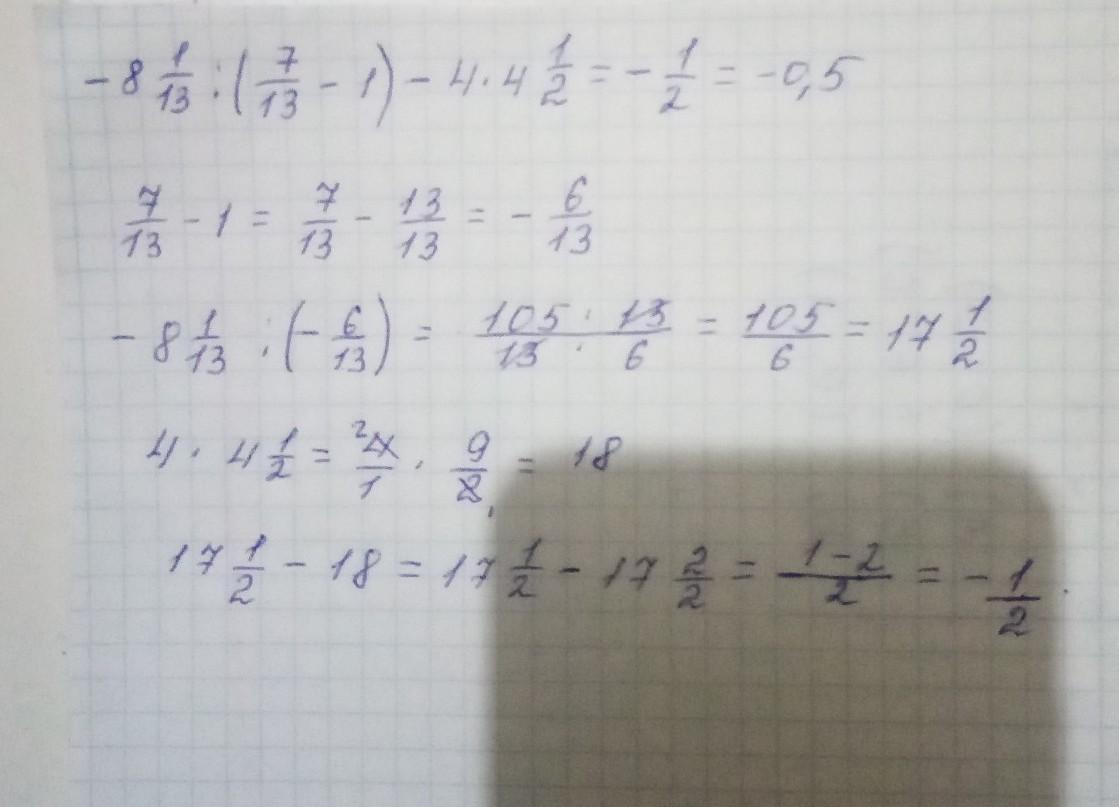 -8 1/13 : (7/13 - 1) - 4 · 4 1/2 = - 1/2 = -0,5
7/13 - 1 = 7/13 - 13/13 = - 6/13
-8 1/13 : (- 6/13) = 105 · 13 / 13 · 6 = 105/6 = 17 1/2
4 · 4 1/2 = 2 4/1 · 9/2 1 = 18
17 1/2 - 18 = 17 1/2 - 17 2/2 = 1-2/2 = - 1/2